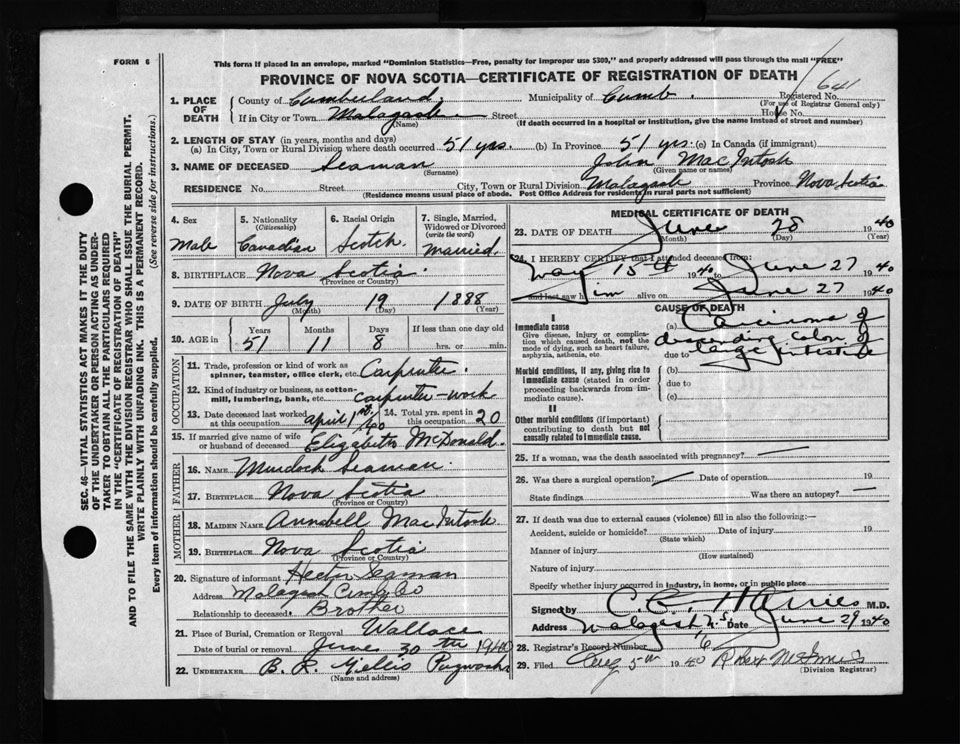 FORM 6
This form if placed in an envelope, marked "Dominion Statistics—Free, penalty for improper use $300," and properly addressed will pass through the mail "FREE"
PROVINCE OF NOVA SCOTIA—CERTIFICATE OF REGISTRATION OF DEATH
641
SEC. 46—VITAL STATISTICS ACT MAKES IT THE DUTY
OF THE UNDERTAKER OR PERSON ACTING AS UNDER-
TAKER TO OBTAIN ALL THE PARTICULARS REQUIRED
IN THE "CERTIFICATE OF REGISTRATION OF DEATH"
AND TO FILE THE SAME WITH THE DIVISION REGISTRAR WHO SHALL ISSUE THE BURIAL PERMIT.
WRITE PLAINLY WITH UNFADING INK. THIS IS A PERMANENT RECORD.
Every item of information should be carefully supplied. (See reverse side for instructions.)
1. PLACE OF DEATH County of Cumberland Municipality of Cumb. Registered No.
(For use of Registrar General only)
If in City or Town Malagash Street House No.
(Name) (If death occurred in a hospital or institution, give the name instead of street and number)
2. LENGTH OF STAY (in years, months and days)
(a) In City, Town or Rural Division where death occurred 51 yrs. (b) In Province 51 yrs. (c) In Canada (if immigrant)
3. NAME OF DECEASED Seaman John MacIntosh
(Surname) (Given name or names)
RESIDENCE No. Street City, Town or Rural Division Malagash Province Nova Scotia
(Residence means usual place of abode. Post Office Address for residents in rural parts not sufficient)
4. Sex Male
5. Nationality (Citizenship) Canadian
6. Racial Origin Scotch
7. Single, Married, Widowed or Divorced (write the word) Married
8. BIRTHPLACE Nova Scotia
(Province or Country)
9. DATE OF BIRTH July 19 1888
(Month) (Day) (Year)
10. AGE in Years 51 Months 11 Days 8 If less than one day old hrs. or min.
OCCUPATION
11. Trade, profession or kind of work as spinner, teamster, office clerk, etc. Carpenter
12. Kind of industry or business, as cotton-mill, lumbering, bank, etc. carpenter-work
13. Date deceased last worked at this occupation April 1st /40 14. Total yrs. spent in this occupation 20
15. If married give name of wife or husband of deceased Elizabeth McDonald
FATHER
16. NAME Murdoch Seaman
17. BIRTHPLACE Nova Scotia
(Province or Country)
MOTHER
18. MAIDEN NAME Annabell MacIntosh
19. BIRTHPLACE Nova Scotia
(Province or Country)
20. Signature of informant Hector Seaman
Address Malagash Co
Relationship to deceased Brother
21. Place of Burial, Cremation or Removal Wallace
Date of burial or removal June 30th 1940
22. UNDERTAKER B. R. Gillis Pugwash
(Name and address)
MEDICAL CERTIFICATE OF DEATH
23. DATE OF DEATH June 28 1940
(Month) (Day) (Year)
24. I HEREBY CERTIFY that I attended deceased from:
May 15th 1940 to June 27 1940
and last saw him alive on June 27 1940
CAUSE OF DEATH
I
Immediate cause
Give disease, injury or complication which caused death, not the mode of dying, such as heart failure, asphyxia, asthenia, etc.
(a) Carcinoma of
descending colon of
due to large intestine
Morbid conditions, if any, giving rise to immediate cause (stated in order proceeding backwards from immediate cause).
(b)
due to
(c)
II
Other morbid conditions (if important) contributing to death but not causally related to immediate cause.
25. If a woman, was the death associated with pregnancy?
26. Was there a surgical operation? Date of operation 19
State findings Was there an autopsy?
27. If death was due to external causes (violence) fill in also the following:—
Accident, suicide or homicide? Date of injury 19
(State which)
Manner of injury
(How sustained)
Nature of injury
Specify whether injury occurred in industry, in home, or in public place
Signed by M.D.
Address Malagash N.S. Date June 29 1940
28. Registrar's Record Number 6
29. Filed Aug 5th 1940
(Division Registrar)